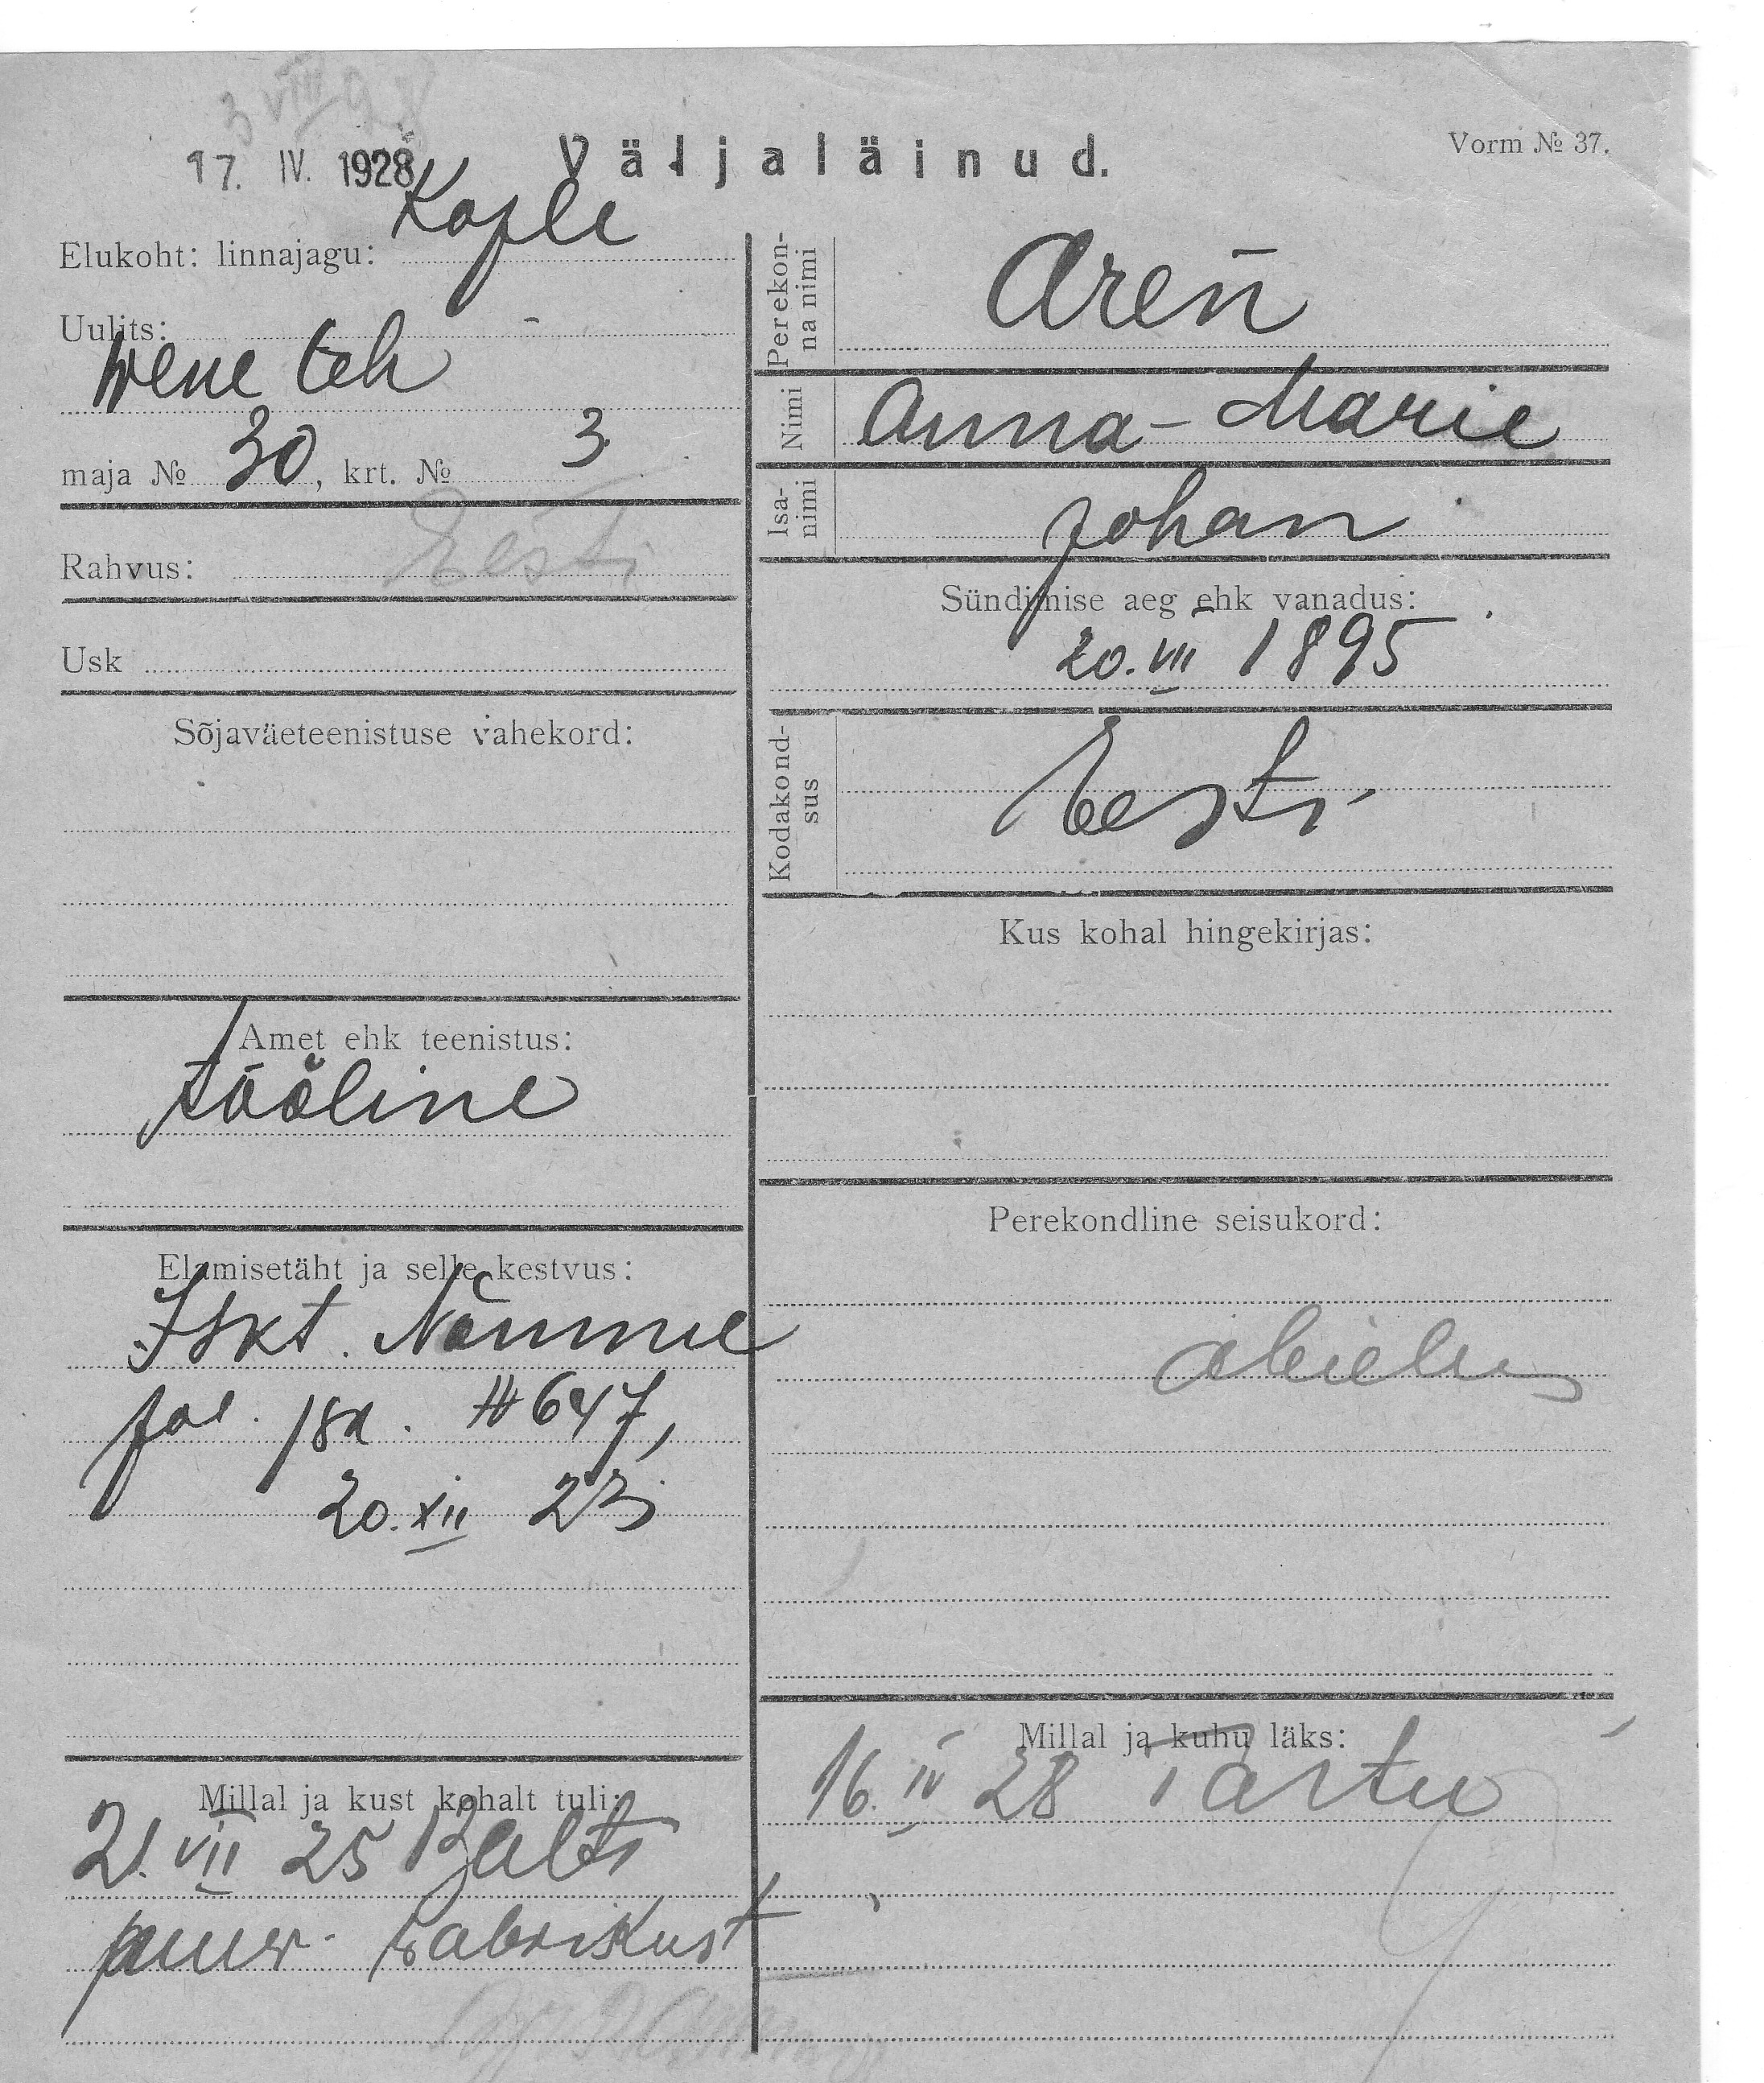 3 VIII 28
17. IV. 1928
Väljaläinud.
Vorm № 37.
Elukoht: linnajagu: Kople
Uulits:
Wene teh
maja № 30, krt. № 3
Rahvus: Eesti
Usk
Sõjaväeteenistuse vahekord:
Amet ehk teenistus:
tööline
Elamisetäht ja selle kestvus:
Iskt. Nõmme
jal. 18a. № 647,
20. XII 23
Millal ja kust kohalt tuli:
21. VII 25 Balti
puuw. wabrikust
Perekonnanimi
Areñ
Nimi
Anna-Marie
Isanimi
Johan
Sündimise aeg ehk vanadus:
20. VII 1895
Kodakondsus
Eesti
Kus kohal hingekirjas:
Perekondline seisukord:
abielu
Millal ja kuhu läks:
16. IV 28 Tartu